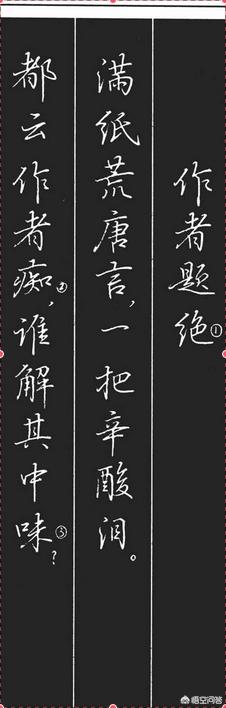 作者题绝①
满纸荒唐言，一把辛酸泪。
都云作者痴②，谁解其中味③？
悟空问答